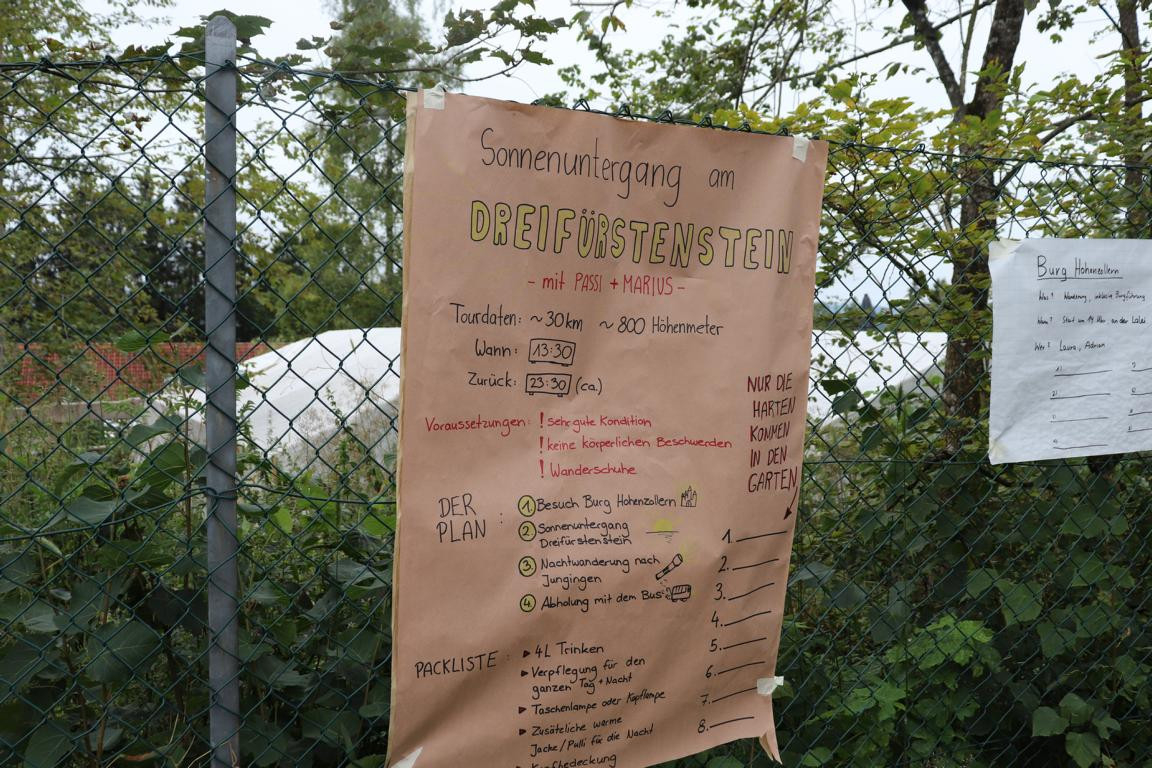 Sonnenuntergang am
DREIFÜRSTENSTEIN
- mit PASSI + MARIUS -
Tourdaten: ~ 30km ~ 800 Höhenmeter
Wann: 13:30
Zurück: 23:30 (ca.)
Voraussetzungen: ! sehr gute Kondition
! keine körperlichen Beschwerden
! Wanderschuhe
NUR DIE
HARTEN
KOMMEN
IN DEN
GARTEN
DER
PLAN :
1. Besuch Burg Hohenzollern
2. Sonnenuntergang
Dreifürstenstein
3. Nachtwanderung nach
Jungingen
4. Abholung mit dem Bus
PACKLISTE : ▸ 4L Trinken
▸ Verpflegung für den
ganzen Tag + Nacht
▸ Taschenlampe oder Kopflampe
▸ Zusätzliche warme
Jacke/Pulli für die Nacht
▸ Kopfbedeckung
1.
2.
3.
4.
5.
6.
7.
8.
Burg Hohenzollern
Was? Wanderung, inklusive Burgführung
Wann? Start um 14 Uhr, an der Lalei
Wer? Laura, Adrian